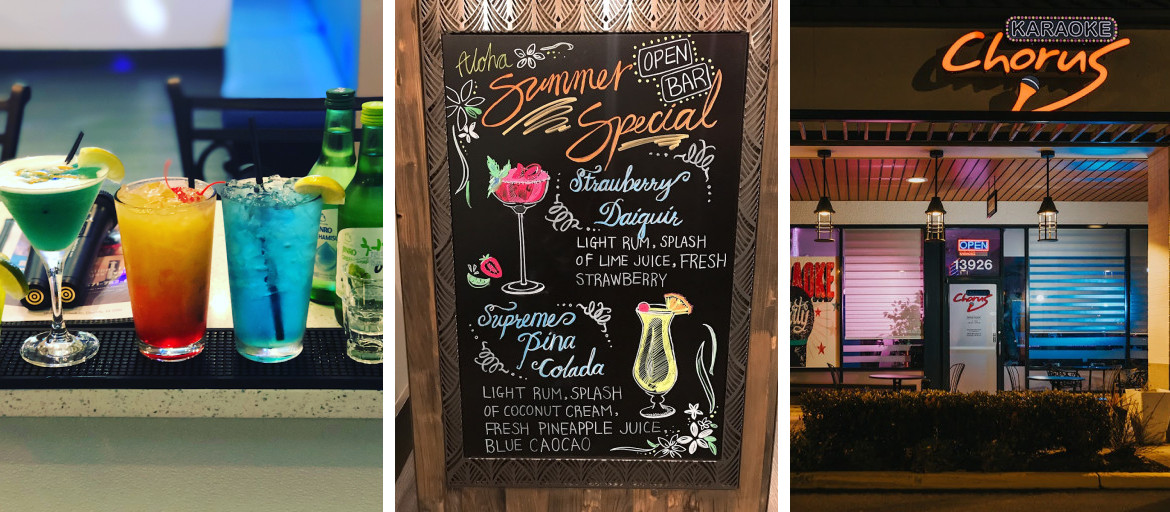 Aloha
Summer
Special
OPEN
BAR
Strauberry
Daiquir
LIGHT RUM, SPLASH
OF LIME JUICE, FRESH
STRAWBERRY
Supreme
Pina
Colada
LIGHT RUM, SPLASH
OF COCONUT CREAM,
FRESH PINEAPPLE JUICE,
BLUE CAOCAO
KARAOKE
Chorus
OPEN
13926
Chorus